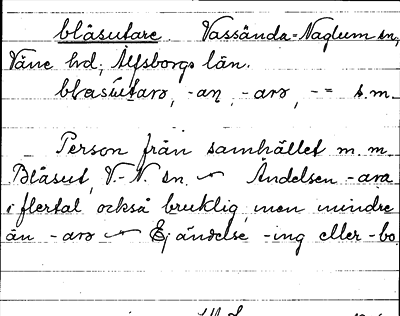 blåsutare. Vassända-Naglum sn,
Väne hd; Älfsborgs län.
blåsu̅tarə, -aɳ, -arə, -= s.m.
Person från samhället m. m.
Blåsut, V.-N. sn. ~ Ändelsen -ara
i flertal också bruklig, men mindre
än -arə ~ Ej ändelse -ing eller -bo.